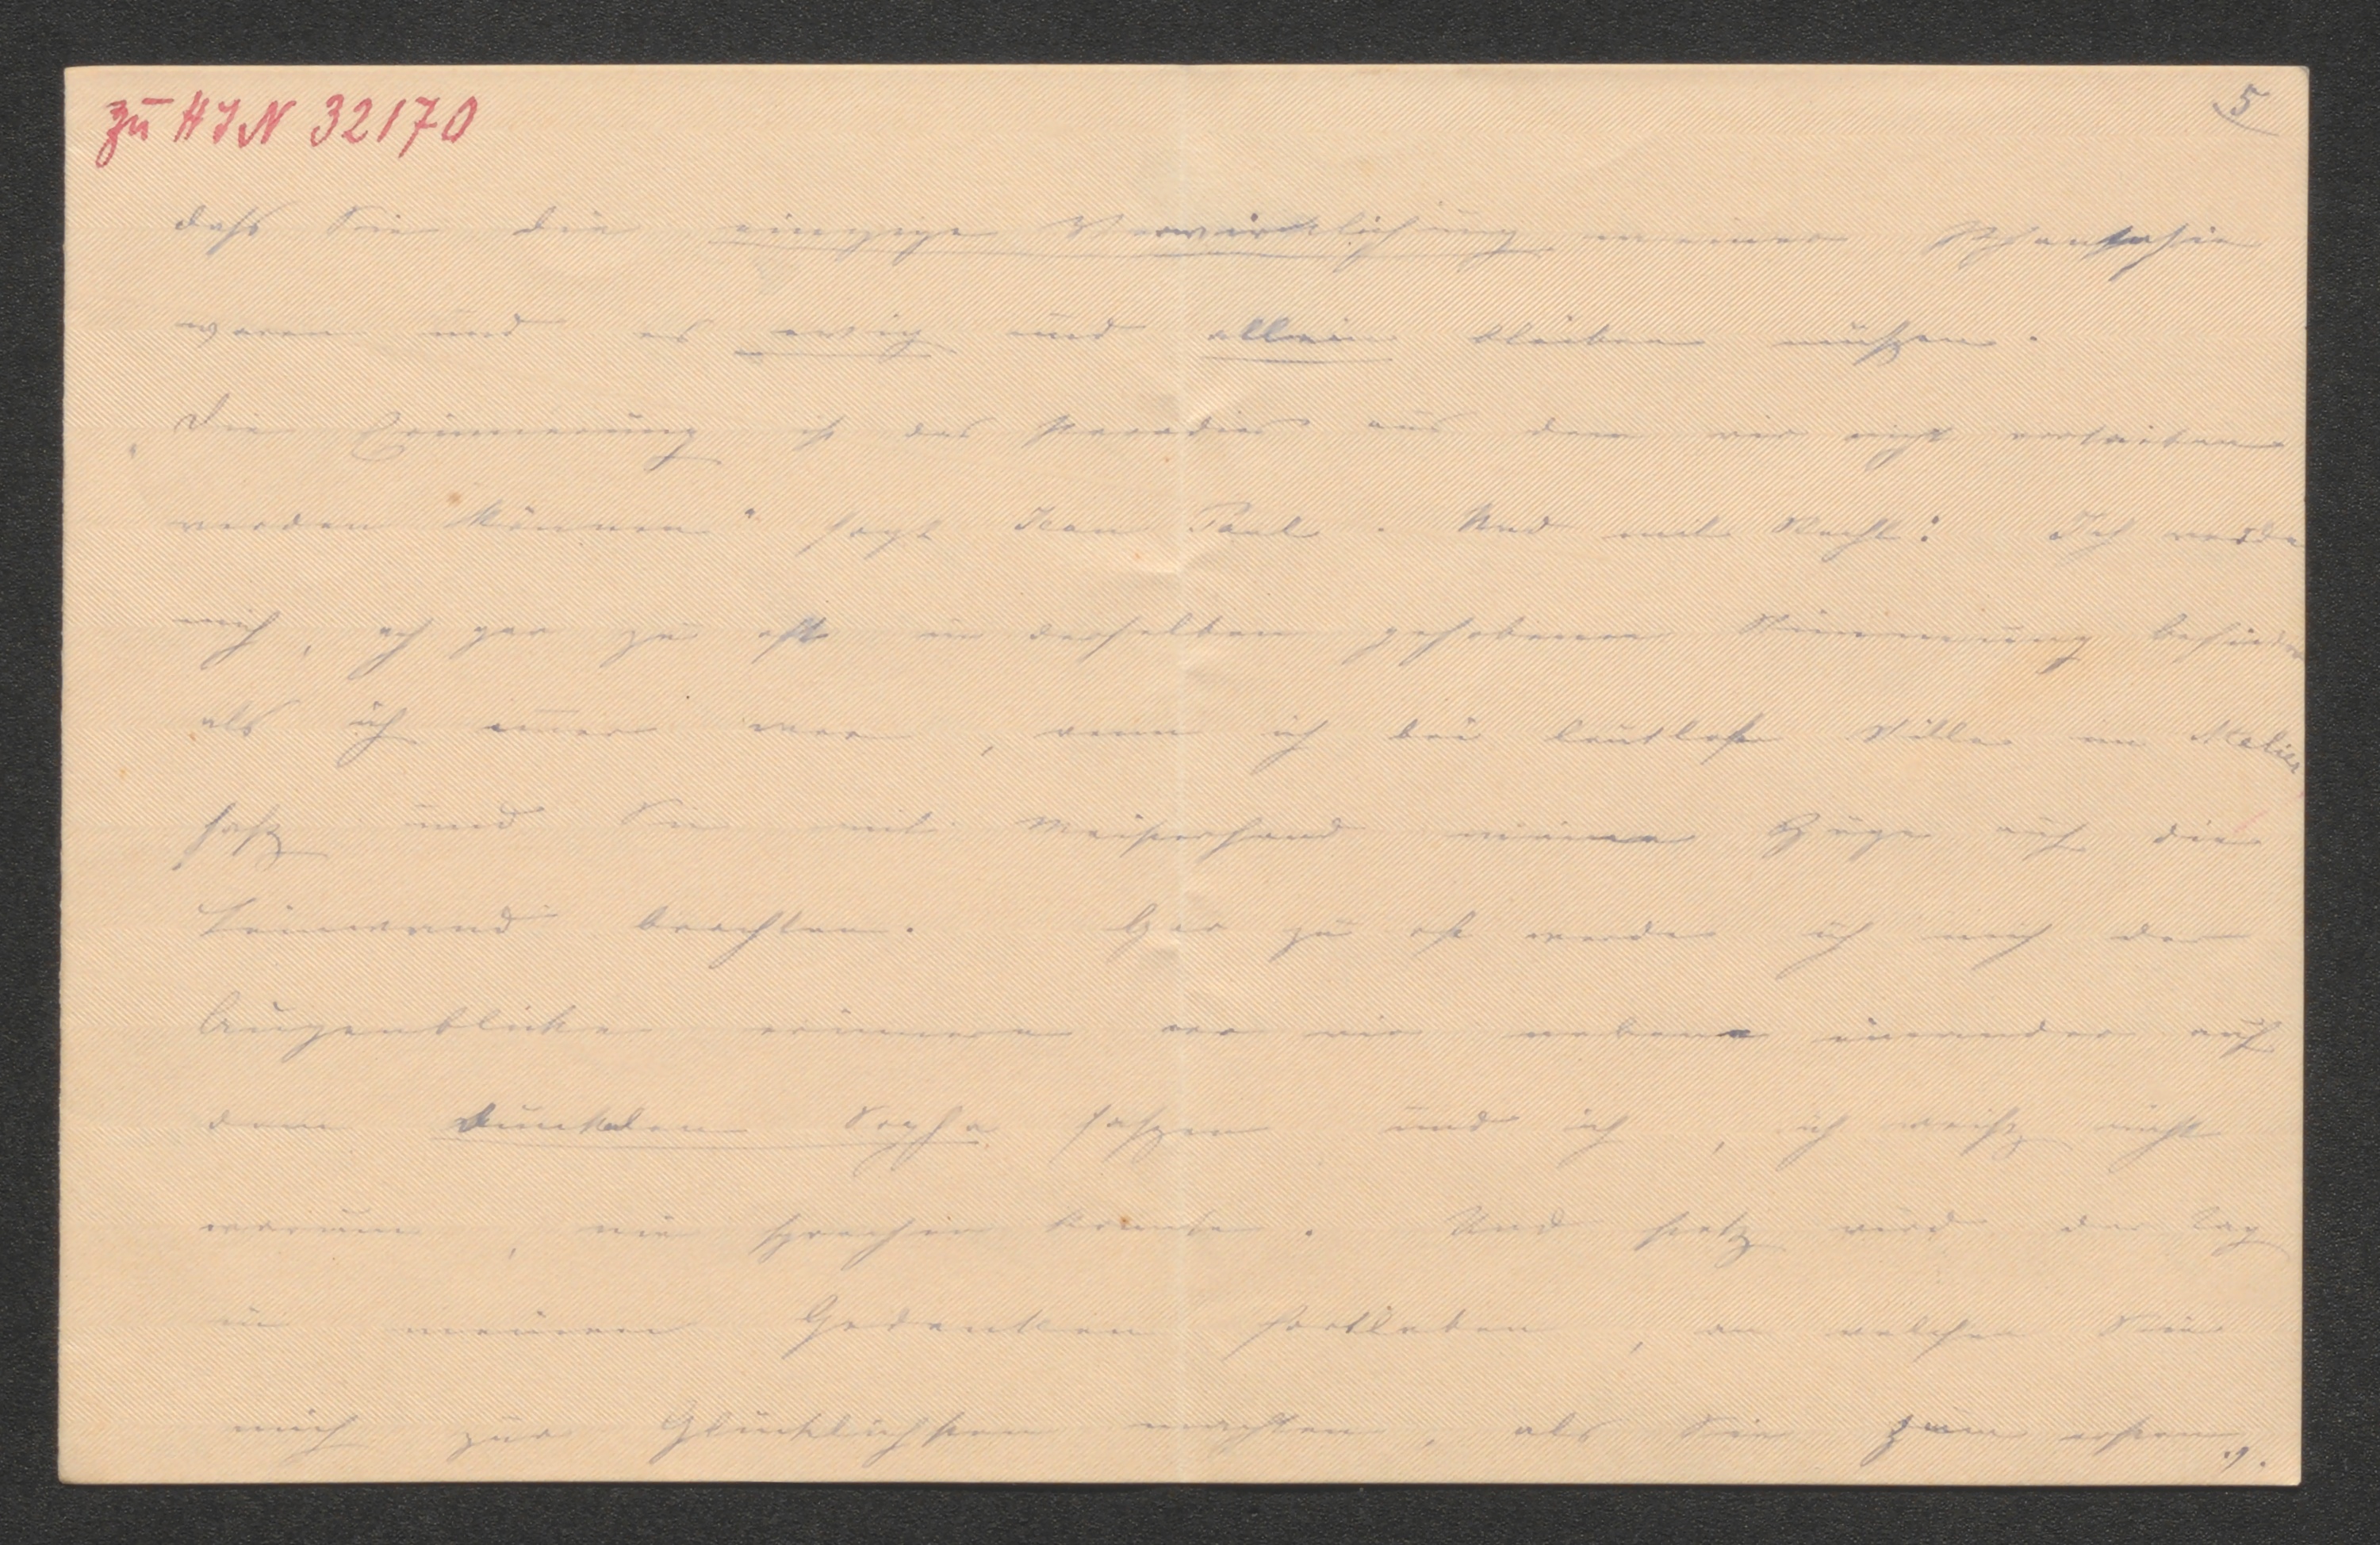 zu HIN 32170
5
dass Sie die einzige Verwirklichung meiner Phantasie
waren und es ewig und allein bleiben müßen.
„Die Erinnerung ist das Paradies aus dem wir nicht vertrieben
werden können" sagt Jean Paul. Und mit Recht: Ich werde
mich, ach gar zu oft in derselben gehobenen Stimmung befinden
als ich immer war, wenn ich bei lautloser Stille im Atelier
saß und Sie mit Meisterhand meine Züge auf die
Leinwand brachten. Gar zu oft werde ich mich der
Augenblicke erinnern wo wir neben einander auf
dem dunklen Sopha saßen und ich, ich weiß nicht
warum, nie sprechen konnte. Und stets wird der Tag
in meinen Gedanken fortleben, an welchem Sie
mich zur Glücklichsten machten, als Sie zum ersten